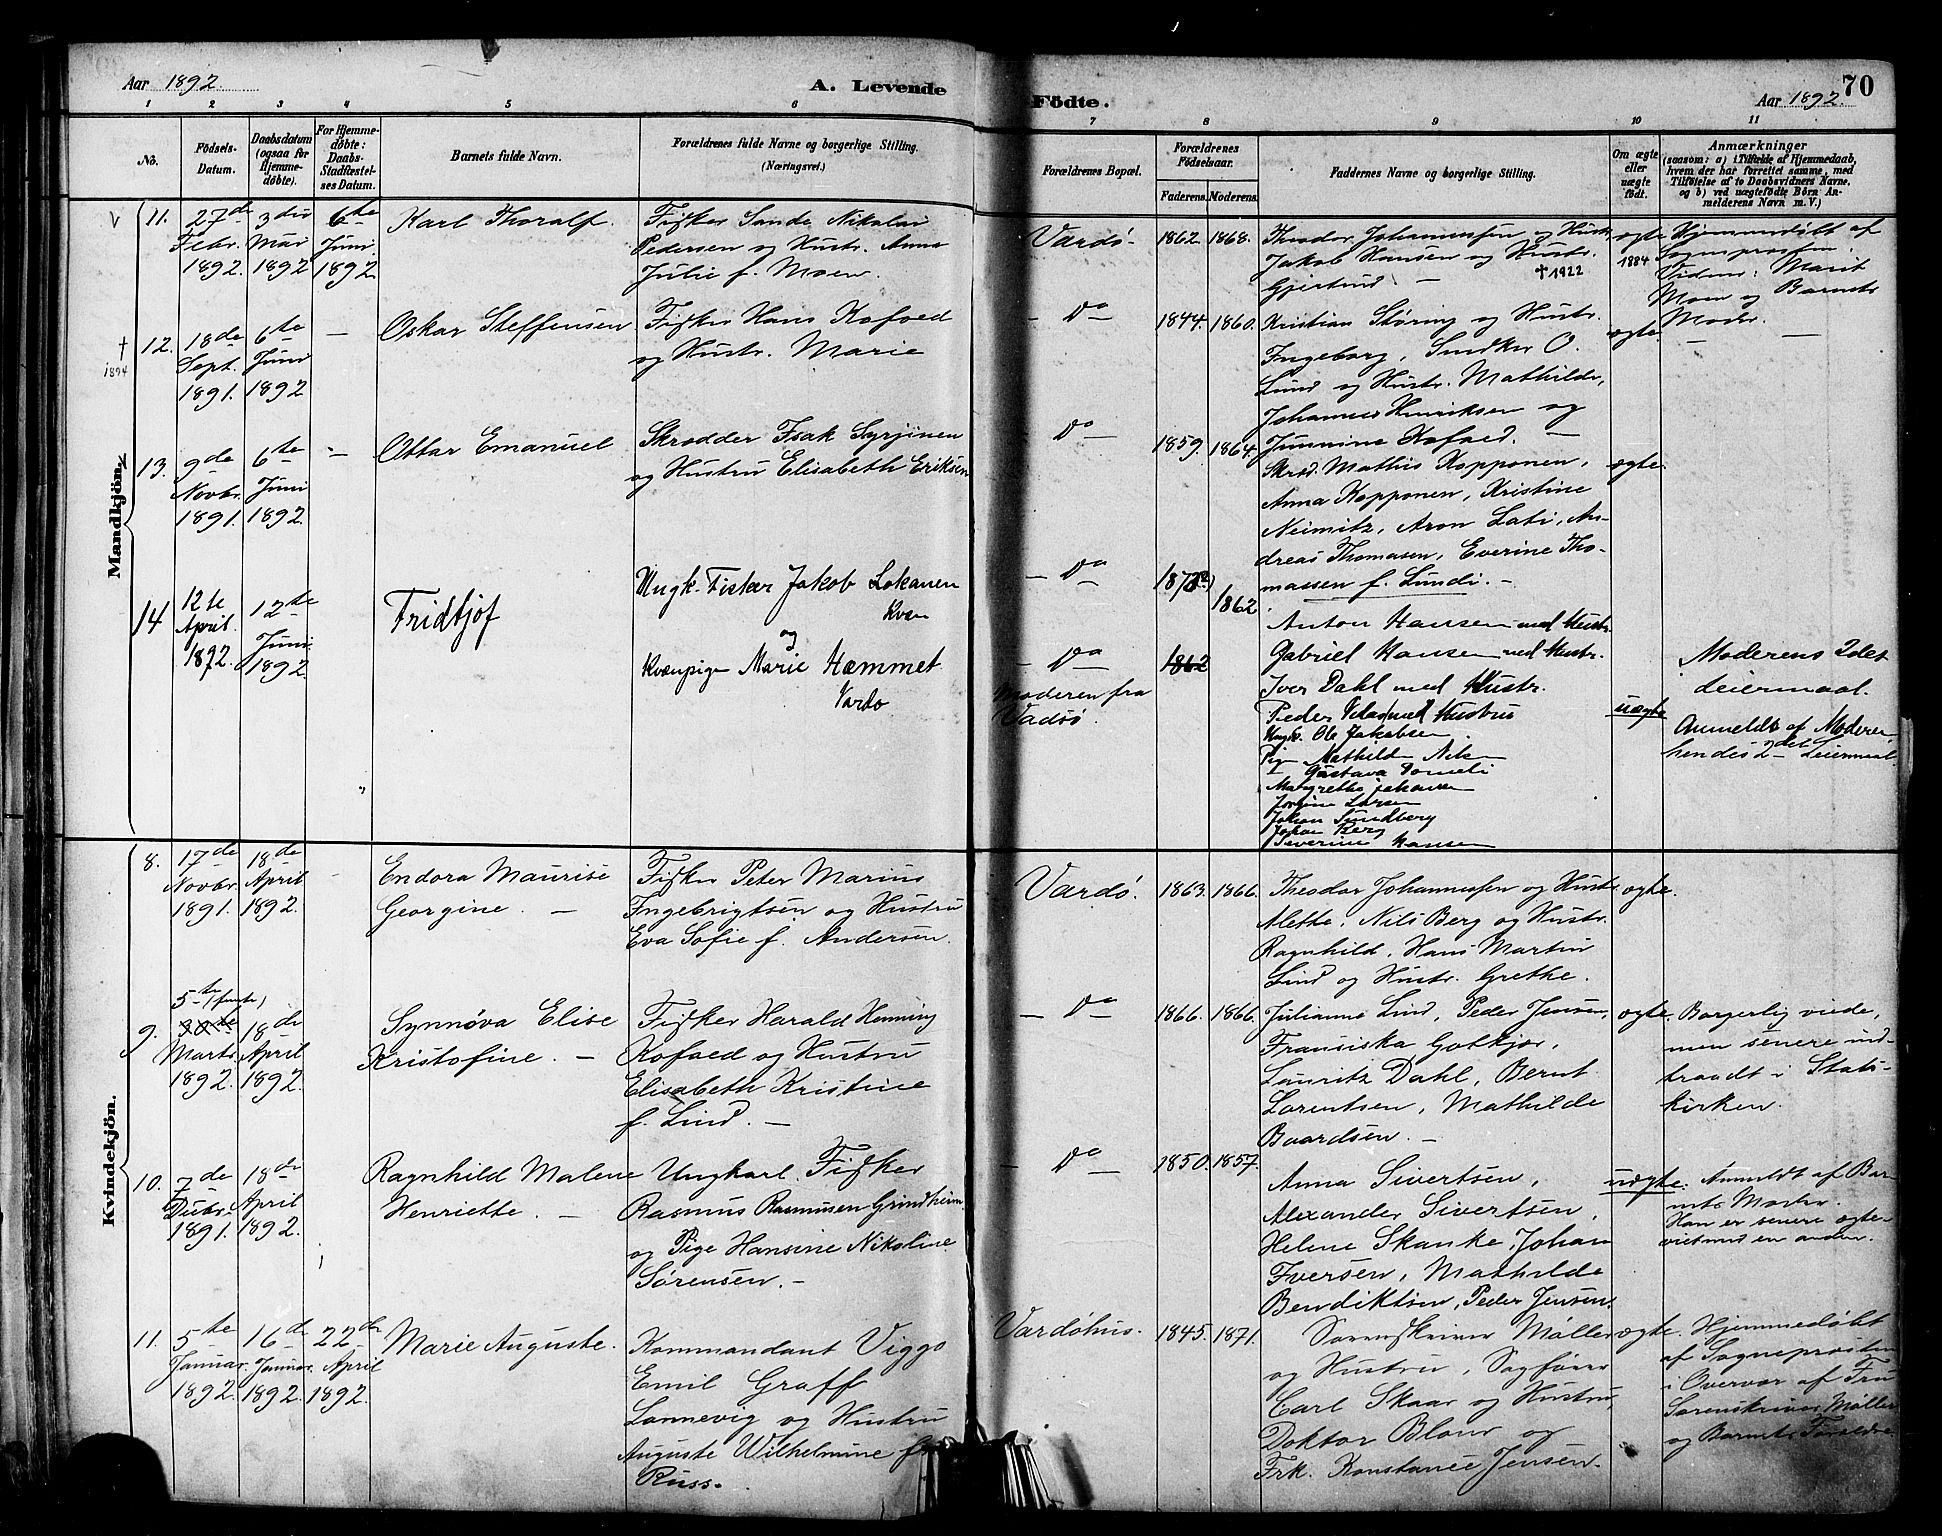 Aar 1892.
A. Levende Födte.
Aar 1892.
70
1 2 3 4 5 6 7 8 9 10 11
No.
Födsels-Datum.
Daabsdatum (ogsaa for Hjemme-döbte).
For Hjemme-döbte: Daabs-Stadfæstel-ses Datum.
Barnets fulde Navn.
Forældrenes fulde Navne og borgerlige Stilling.
(Næringsvei.)
Forældrenes Bopæl.
Forældrenes Födselsaar.
Faderens. Moderens.
Faddernes Navne og borgerlige Stilling.
Om ægte eller uægte födt.
Anmærkninger
(saasom: a) i Tilfælde af Hjemmedaab,
hvem der har forrettet samme, med
Tilföielse af to Daabsvidners Navne,
og b) ved uægtefödte Börn An-
melderens Navn m. V.)
Mandkjön.
11.
27de
Febr.
1892.
3die
Mar
1892
6te
Juni
1892.
Karl Thoralf.
Fisker Sande Nikolai
Pedersen og Hustr. Anna
Julie f. Moen.
Vardø.
1862. 1868.
Theodor Johannessen og Hustr.
Jakob Hansen og Hustr.
† 1922
Gjertrud —
ægte
1884
Hjemmedøbt af
Sogneprosten.
Vidner: Marit
Moen og Barnets
Moder.
†
1894
12.
18de
Sept.
1891.
6te
Juni
1892
—
Oskar Steffensen
Fisker Hans Kofoed
og Hustr. Marie
— Do —
1844. 1860.
Kristian Støring og Hustr.
Ingeborg, Snedker O.
Lund og Hustr. Mathilde,
Johannes Henriksen og
Jumnine Kofoed. —
ægte.
— —
13.
9de
Novbr.
1891.
6te
Juni
1892.
—
Ottar Emanuel
Skrædder Isak Syrjinen
og Hustru Elisabeth Eriksen
Do —
1859. 1864.
Skræd. Mathis Kopponen,
Anna Kopponen, Kristine
Neimitz, Aron Lati, An-
dreas Thomasen, Everine Tho-
massen f. Lundi. —
ægte.
14
12te
April.
1892.
12te
Juni
1892
Fridtjof
Ungk. Fisker Jakob Lokanen
Kvæn
og
Kvænpige Marie Hæmmet
Vardø
— Do —
— Do —
Moderen fra
Vadsø.
1862
1862
Anton Hansen med Hustr.
Gabriel Hansen med Hustr.
Iver Dahl med Hustr.
Ungk. Ole Jakobsen
Margrethe Johansen
Jørgine Larsen
Johan Sundberg
Johan Berg
Severine Hansen
uægte
Moderens 2det
Leiermaal.
Anmeldt af Moderen
hendes 2det Leiermaal.
Kvindekjön.
8.
17de
Novbr.
1891.
18de
April
1892.
—
Endora Maurise
Georgine. —
Fisker Peter Marius
Ingebrigtsen og Hustru
Eva Sofie f. Andersen.
Vardø.
1863. 1866.
Theodor Johannessen og Hustr.
Alethe, Nils Berg og Hustr.
Ragnhild, Hans Martin
Lind og Hustr. Grethe.
ægte.
9.
5te (femte)
Marts
1892.
18de
April
1892.
Synnøva Elise
Kristofine. —
Fisker Harald Henning
Kofoed og Hustru
Elisabeth Kristine
f. Lind. —
— Do —
1866. 1866.
Julianne Lind, Peder Jensen,
Franciska Gotkjær,
Lauritz Dahl, Bernt
Lorentsen, Mathilde
Baardsen. —
ægte.
Borgerlig viede,
men senere ind-
traadt i Stats-
kirken.
10.
7de
Decbr.
1891.
18de
April
1892.
Ragnhild Malene
Henriette. —
Ungkarl Fisker
Rasmus Rasmussen Grindheim
og Pige Hansine Nikoline
Sørensen. —
— Do —
1850. 1857.
Anna Sivertsen,
Alexander Sivertsen,
Helene Skanke, Johan
Iversen, Mathilde
Bendiktsen, Peder Jensen.
uægte.
Anmeldt af Bar-
nets Moder.
Han er senere ægte-
viet med en anden.
11.
5te
Januar.
1892.
16de
Januar.
1892.
22de
April
1892.
Marie Auguste.
Kommandant Viggo
Emil Graff
Lannevig og Hustru
Auguste Wilhelmine f.
Russ.
Vardøhus.
1845. 1871.
Sorenskriver Møller
og Hustru, Sagfører
Carl Skaar og Hustru,
Doktor Blom og
Frk. Konstance Jensen.
ægte.
Hjemmedøbt
af Sogneprosten
i Overvær af Fru
Sorenskriver Møller
og Barnets Forældre.